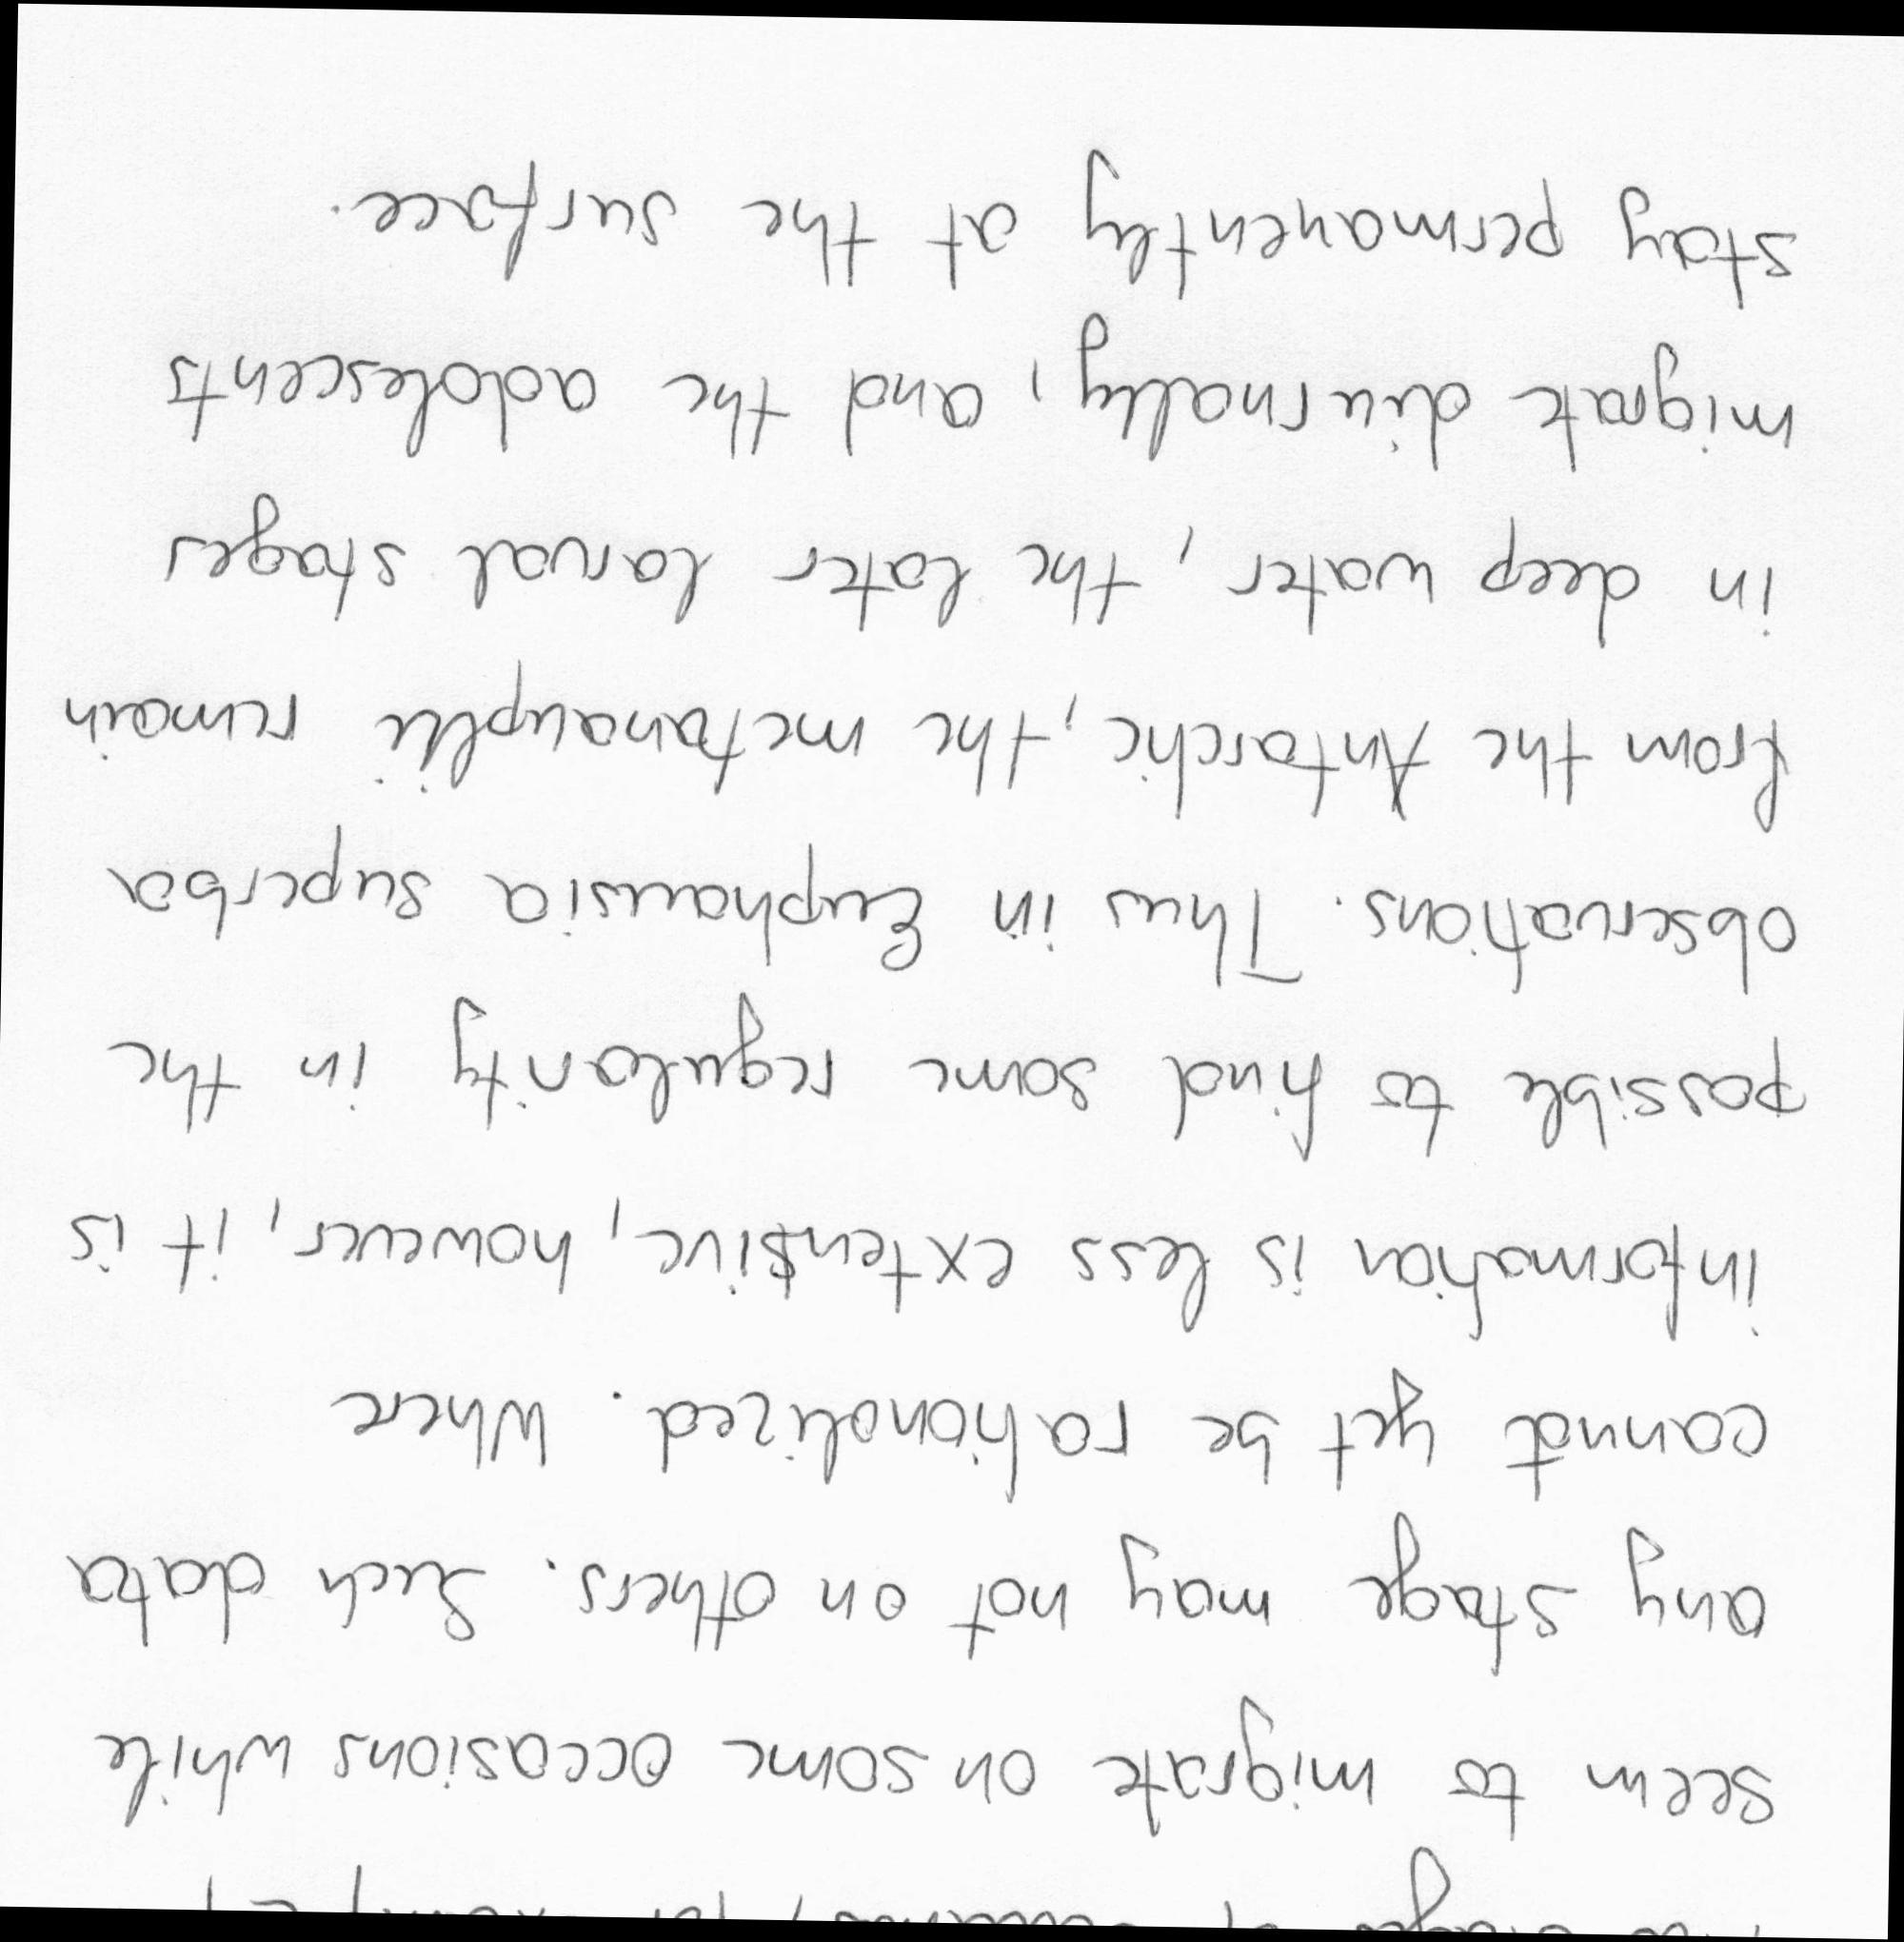 seem to migrate on some occasions while
any stage may not on others. Such data
cannot yet be rationalized. Where
information is less extensive, however, it is
possible to find some regularity in the
observations. Thus in Euphausia superba
from the Antarctic, the metanauplii remain
in deep water, the later larval stages
migrate diurnally, and the adolescents
stay permanently at the surface.